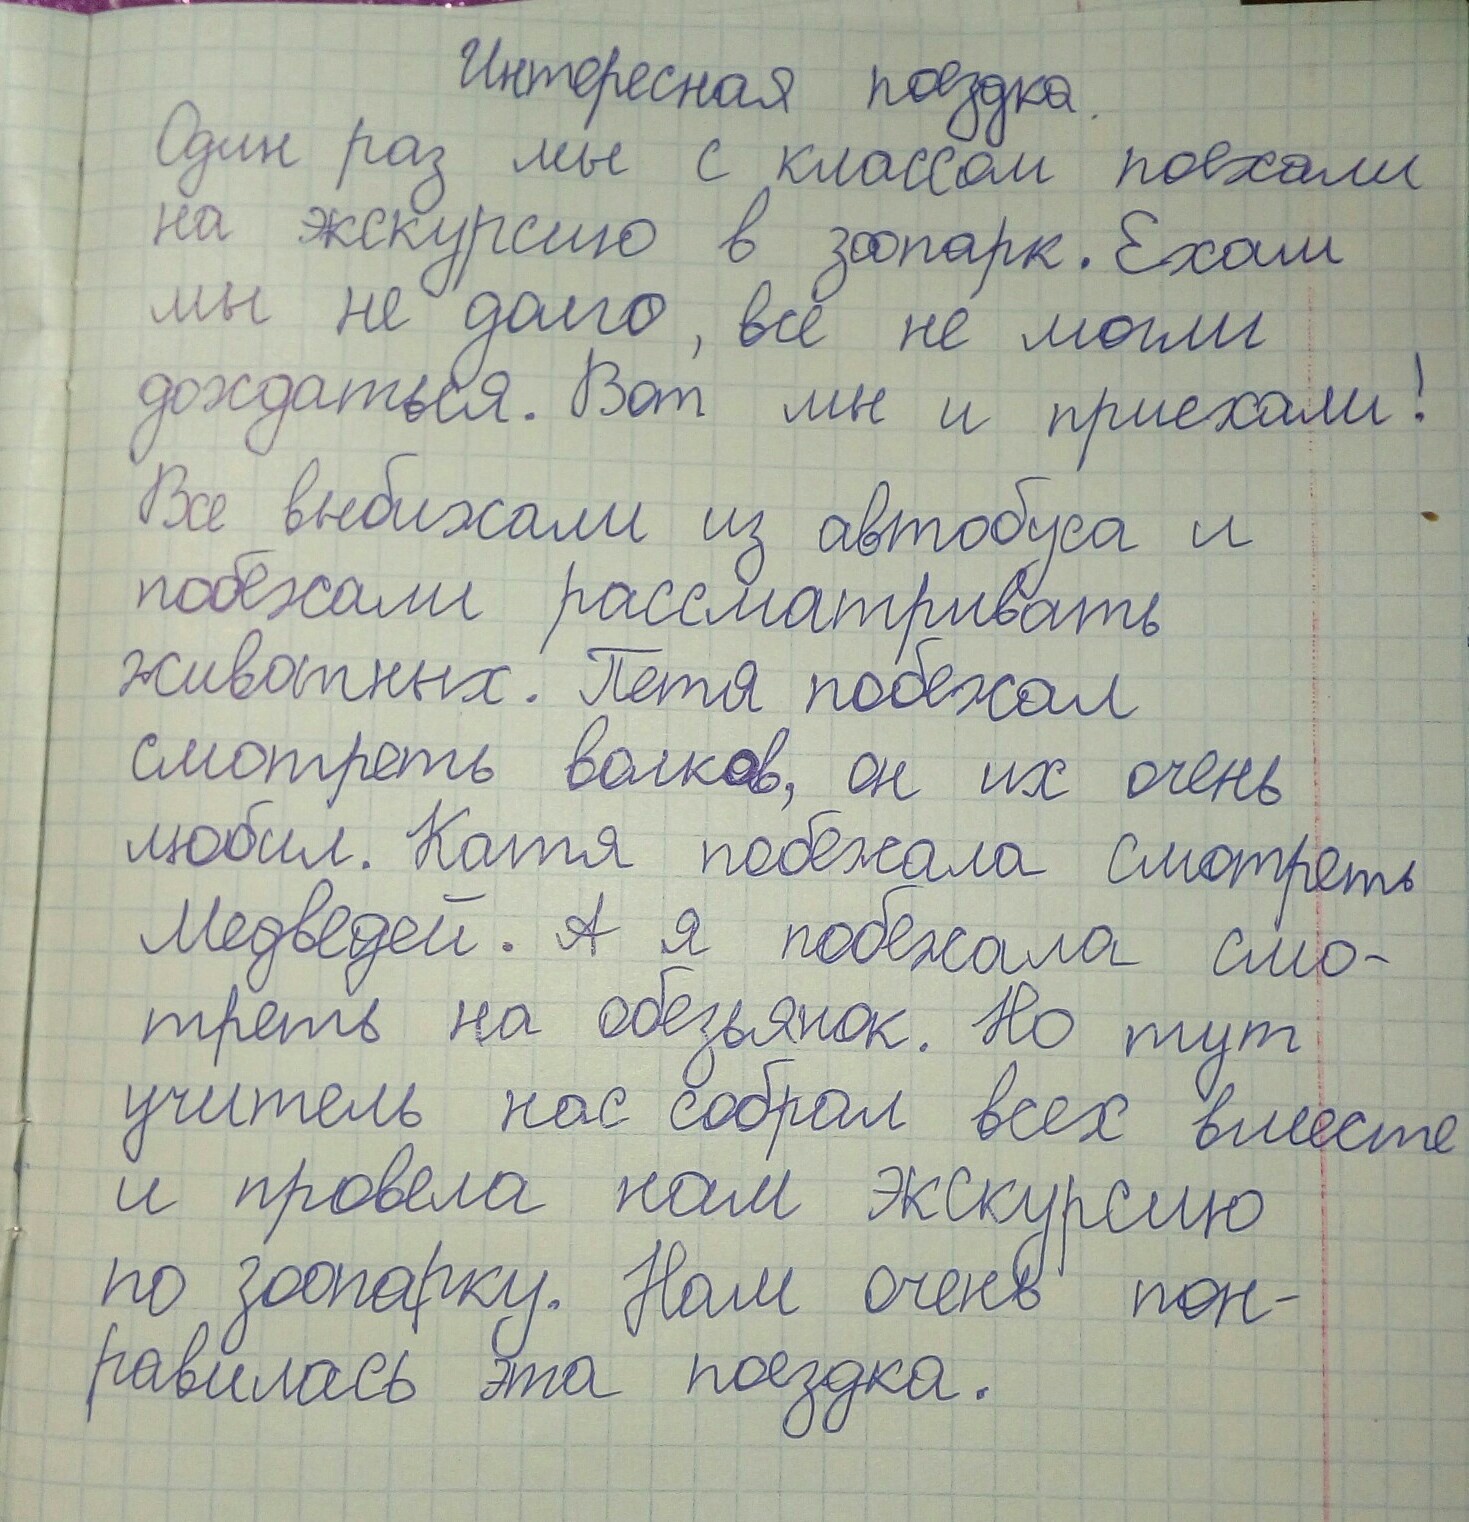 Интересная поездка.
Один раз мы с классом поехали
на экскурсию в зоопарк. Ехали
мы не долго, все не могли
дождаться. Вот мы и приехали!
Все выбижали из автобуса и
побежали рассматривать
животных. Петя побежал
смотреть волков, он их очень
любил. Катя побежала смотреть
Медведей. А я побежала смо-
треть на обезьянок. Но тут
учитель нас собрал всех вместе
и провела нам экскурсию
по зоопарку. Нам очень пон-
равилась эта поездка.